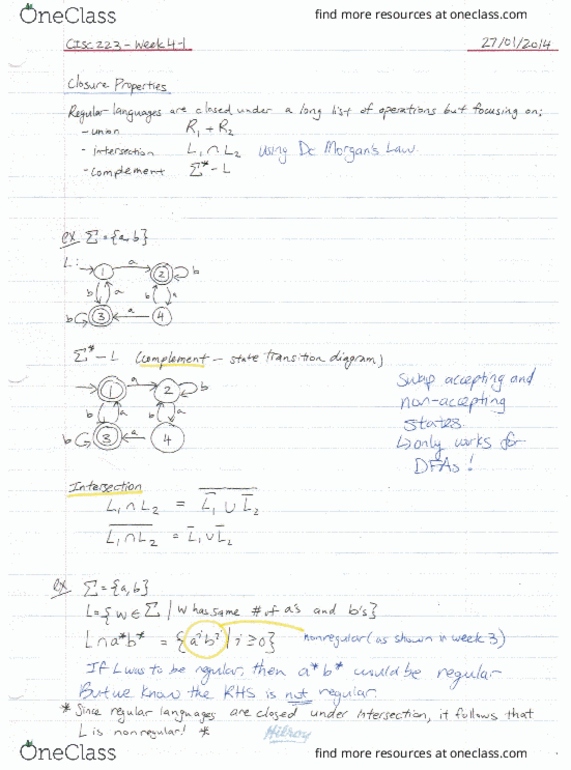 OneClass
find more resources at oneclass.com
CISC 223 - Week 4-1
27/01/2014
Closure Properties
Regular languages are closed under a long list of operations but focusing on;
- union R₁ + R₂
- intersection L₁ ∩ L₂ using De Morgan's Law
- complement Σ* - L
ex Σ = {a,b}
L: 1 a 2 b
b a b a
b 3 a 4
Σ* - L (complement - state transition diagram)
1 a 2 b
b a b a
b 3 a 4
Swap accepting and
non-accepting
states.
↳ only works for
DFAs!
Intersection
L₁ ∩ L₂ = \overline{\overline{L₁} ∪ \overline{L₂}}
\overline{L₁ ∩ L₂} = \overline{L₁} ∪ \overline{L₂}
ex Σ = {a,b}
L = {w ∈ Σ | w has same # of a's and b's}
L ∩ a*b* = {aⁱbⁱ | i ≥ 0} nonregular (as shown in week 3)
If L was to be regular, then a*b* would be regular
But we know the RHS is not regular.
* Since regular languages are closed under intersection, it follows that
L is nonregular! *
Hilroy
OneClass
find more resources at oneclass.com